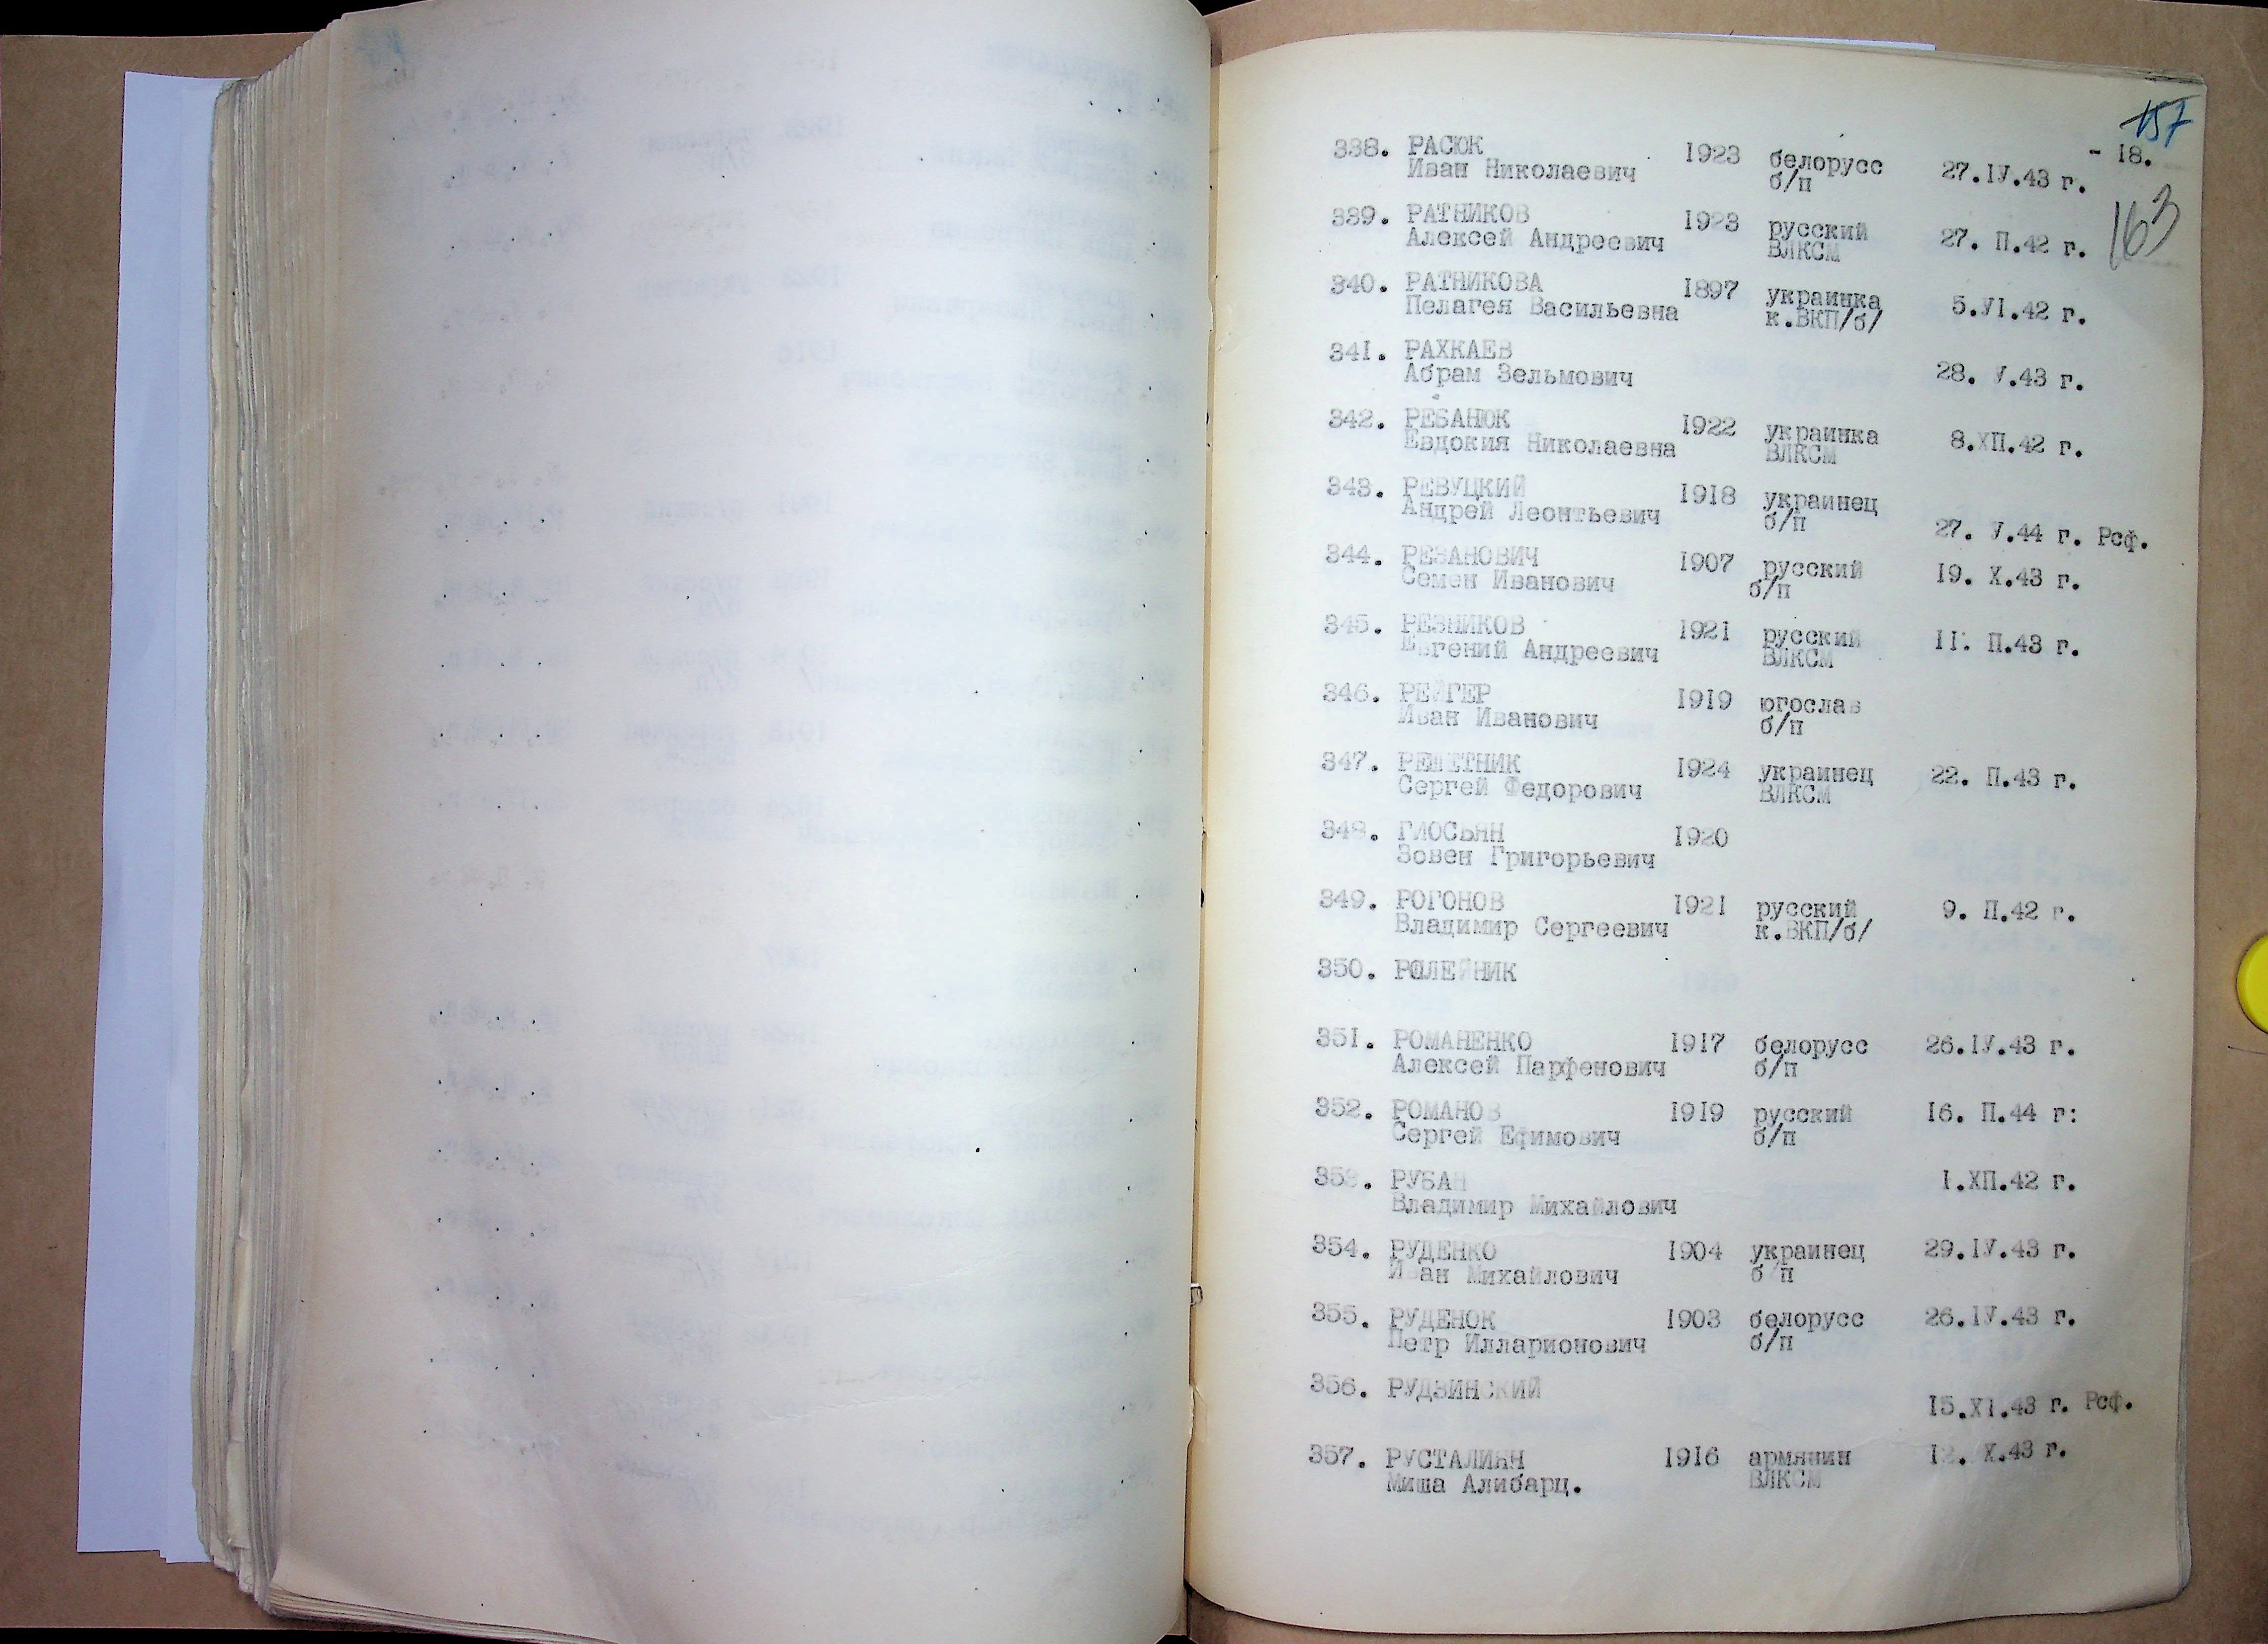 157
- 18.
163
338. РАСЮК 1923 белорусс 27.IV.43 г.
Иван Николаевич б/п
339. РАТНИКОВ 1923 русский 27. П.42 г.
Алексей Андреевич ВЛКСМ
340. РАТНИКОВА 1897 украинка 5.VI.42 г.
Пелагея Васильевна к.ВКП/б/
341. РАХКАЕВ 28. V.43 г.
Абрам Зельмович
342. РЕБАНЮК 1922 украинка 8.ХП.42 г.
Евдокия Николаевна ВЛКСМ
343. РЕВУЦКИЙ 1918 украинец
Андрей Леонтьевич б/п 27. V.44 г. Рсф.
344. РЕЗАНОВИЧ 1907 русский 19. Х.43 г.
Семен Иванович б/п
345. РЕЗНИКОВ 1921 русский II. П.43 г.
Евгений Андреевич ВЛКСМ
346. РЕЙГЕР 1919 югослав
Иван Иванович б/п
347. РЕШЕТНИК 1924 украинец 22. П.43 г.
Сергей Федорович ВЛКСМ
348. 1920
Зовен Григорьевич
349. РОГОНОВ 1921 русский 9. П.42 г.
Владимир Сергеевич к.ВКП/б/
350. РОЛЕЙНИК
351. РОМАНЕНКО 1917 белорусс 26.IV.43 г.
Алексей Парфенович б/п
352. РОМАНОВ 1919 русский 16. П.44 г:
Сергей Ефимович б/п
353. РУБАН 1.ХП.42 г.
Владимир Михайлович
354. РУДЕНКО 1904 украинец 29.IV.43 г.
Иван Михайлович б/п
355. РУДЕНОК 1903 белорусс 26.IV.43 г.
Петр Илларионович б/п
356. РУДЗИНСКИЙ 15.XI.43 г. Рсф.
357. РУСТАЛИЯН 1916 армянин 12. Х.43 г.
Миша Алибарц. ВЛКСМ